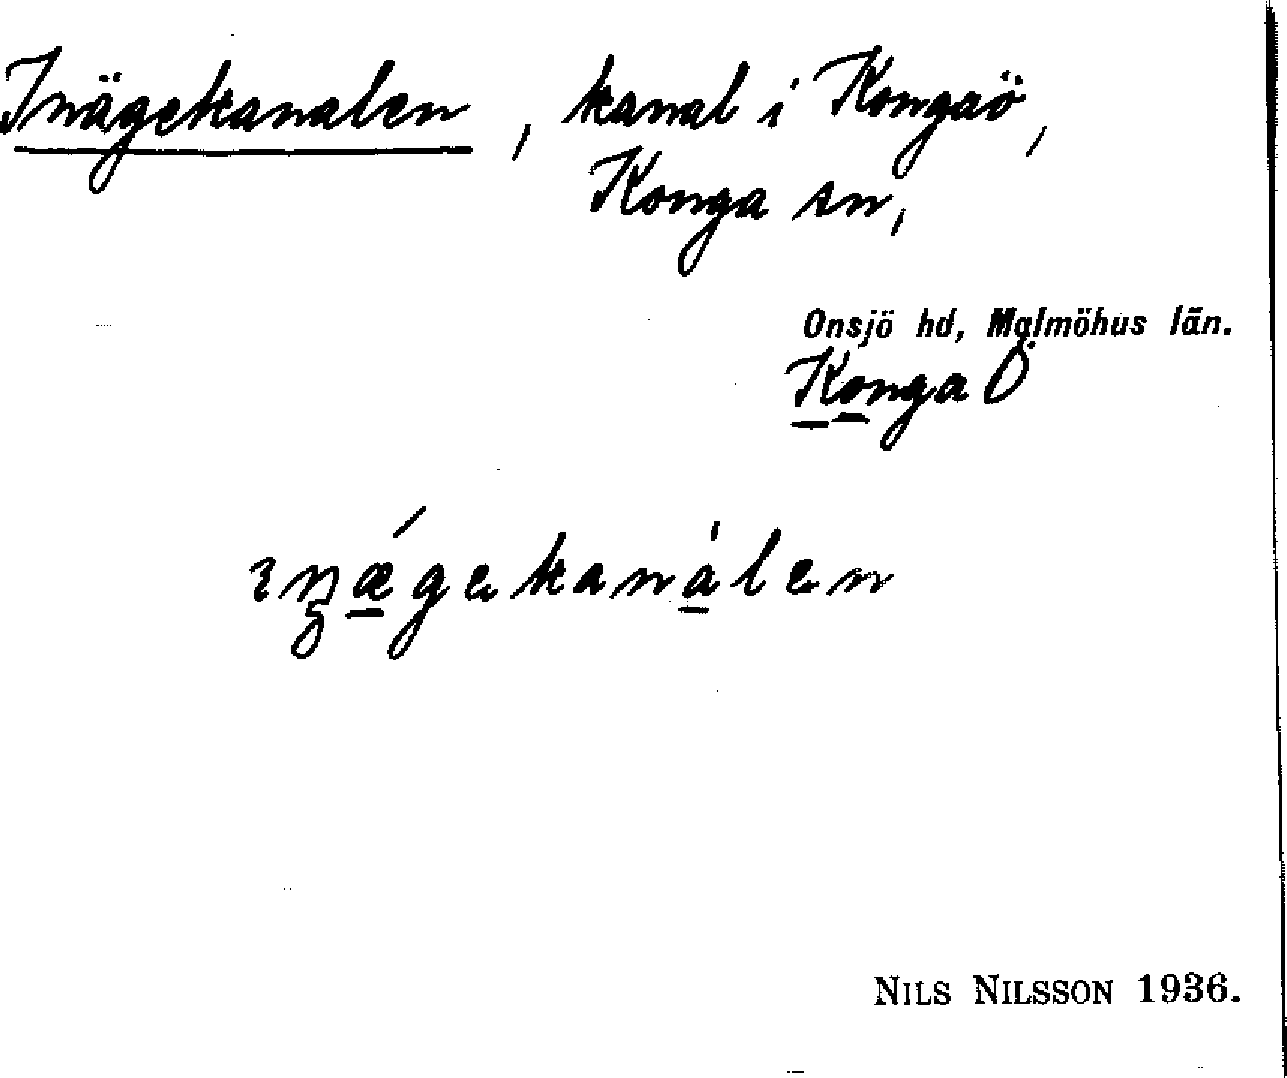 Inägekanalen, kanal i Kongaö,
Konga sn,
Onsjö hd, Malmöhus län.
Konga Ö
ɩnǽgekanálen
NILS NILSSON 1936.